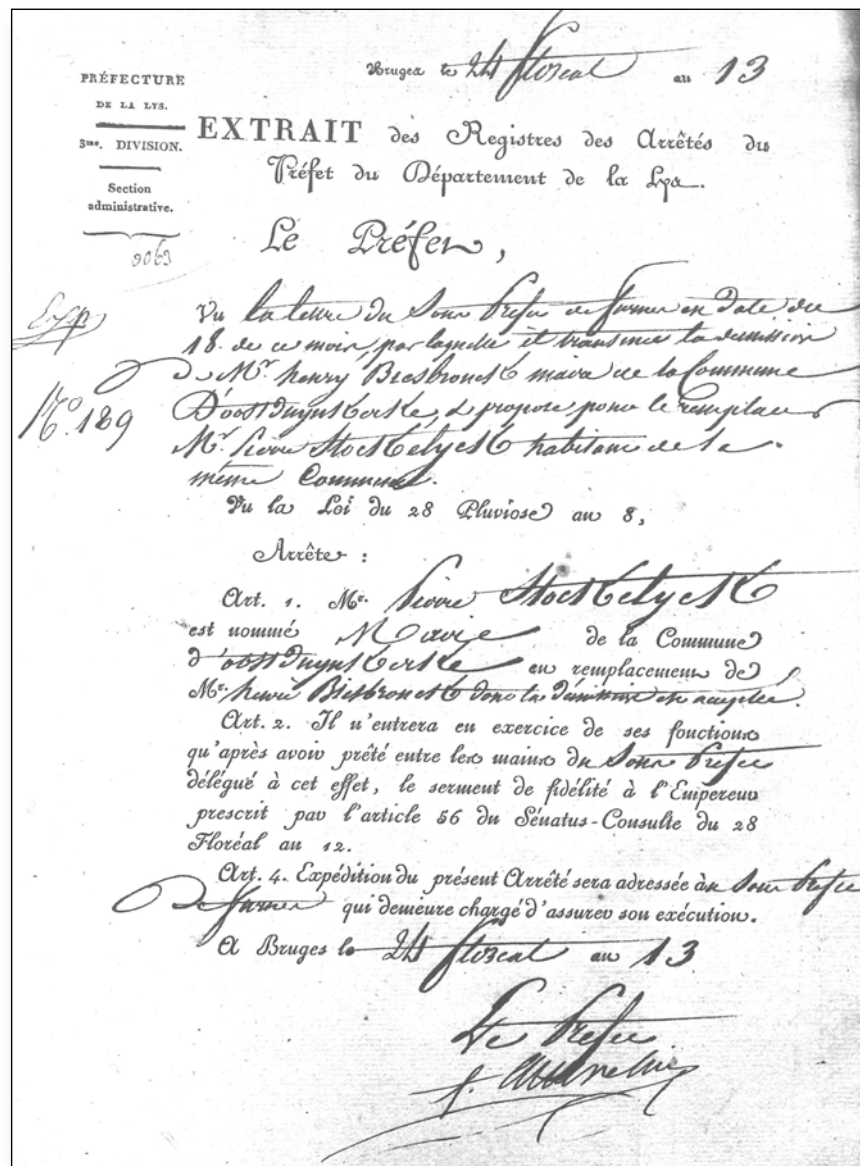 Bruges le 24 floreal an 13
PRÉFECTURE
DE LA LYS.
3me. DIVISION.
Section
administrative.
9063
EXTRAIT des Registres des Arrêtés du
Préfet du Département de la Lys.
Le Préfet,
Exp
No. 189
Vu la lettre du Sous Prefet de furnes en date du
18. de ce mois, par laquelle il transmet la demission
de Mr. henry Biesbrouck maire de la Commune
D'oostduynkerke, & propose pour le remplacer
Mr. Pierre Stockelynck habitant de la
même Commune.
Vu la Loi du 28 Pluviose an 8,
Arrête :
Art. 1. Mr. Pierre
est nommé Maire de la Commune
d'oostduynkerke en remplacement de
Mr. henri Biesbrouck dont la démission est acceptée.
Art. 2. Il n'entrera en exercice de ses fonctions
qu'après avoir prêté entre les mains du Sous Prefet
délégué à cet effet, le serment de fidélité à l'Empereur
prescrit par l'article 56 du Sénatus-Consulte du 28
Floréal an 12.
Art. 4. Expédition du présent Arrêté sera adressée au Sous Prefet
De furnes qui demeure chargé d'assurer son exécution.
A Bruges le 24 floreal an 13
Le Prefet